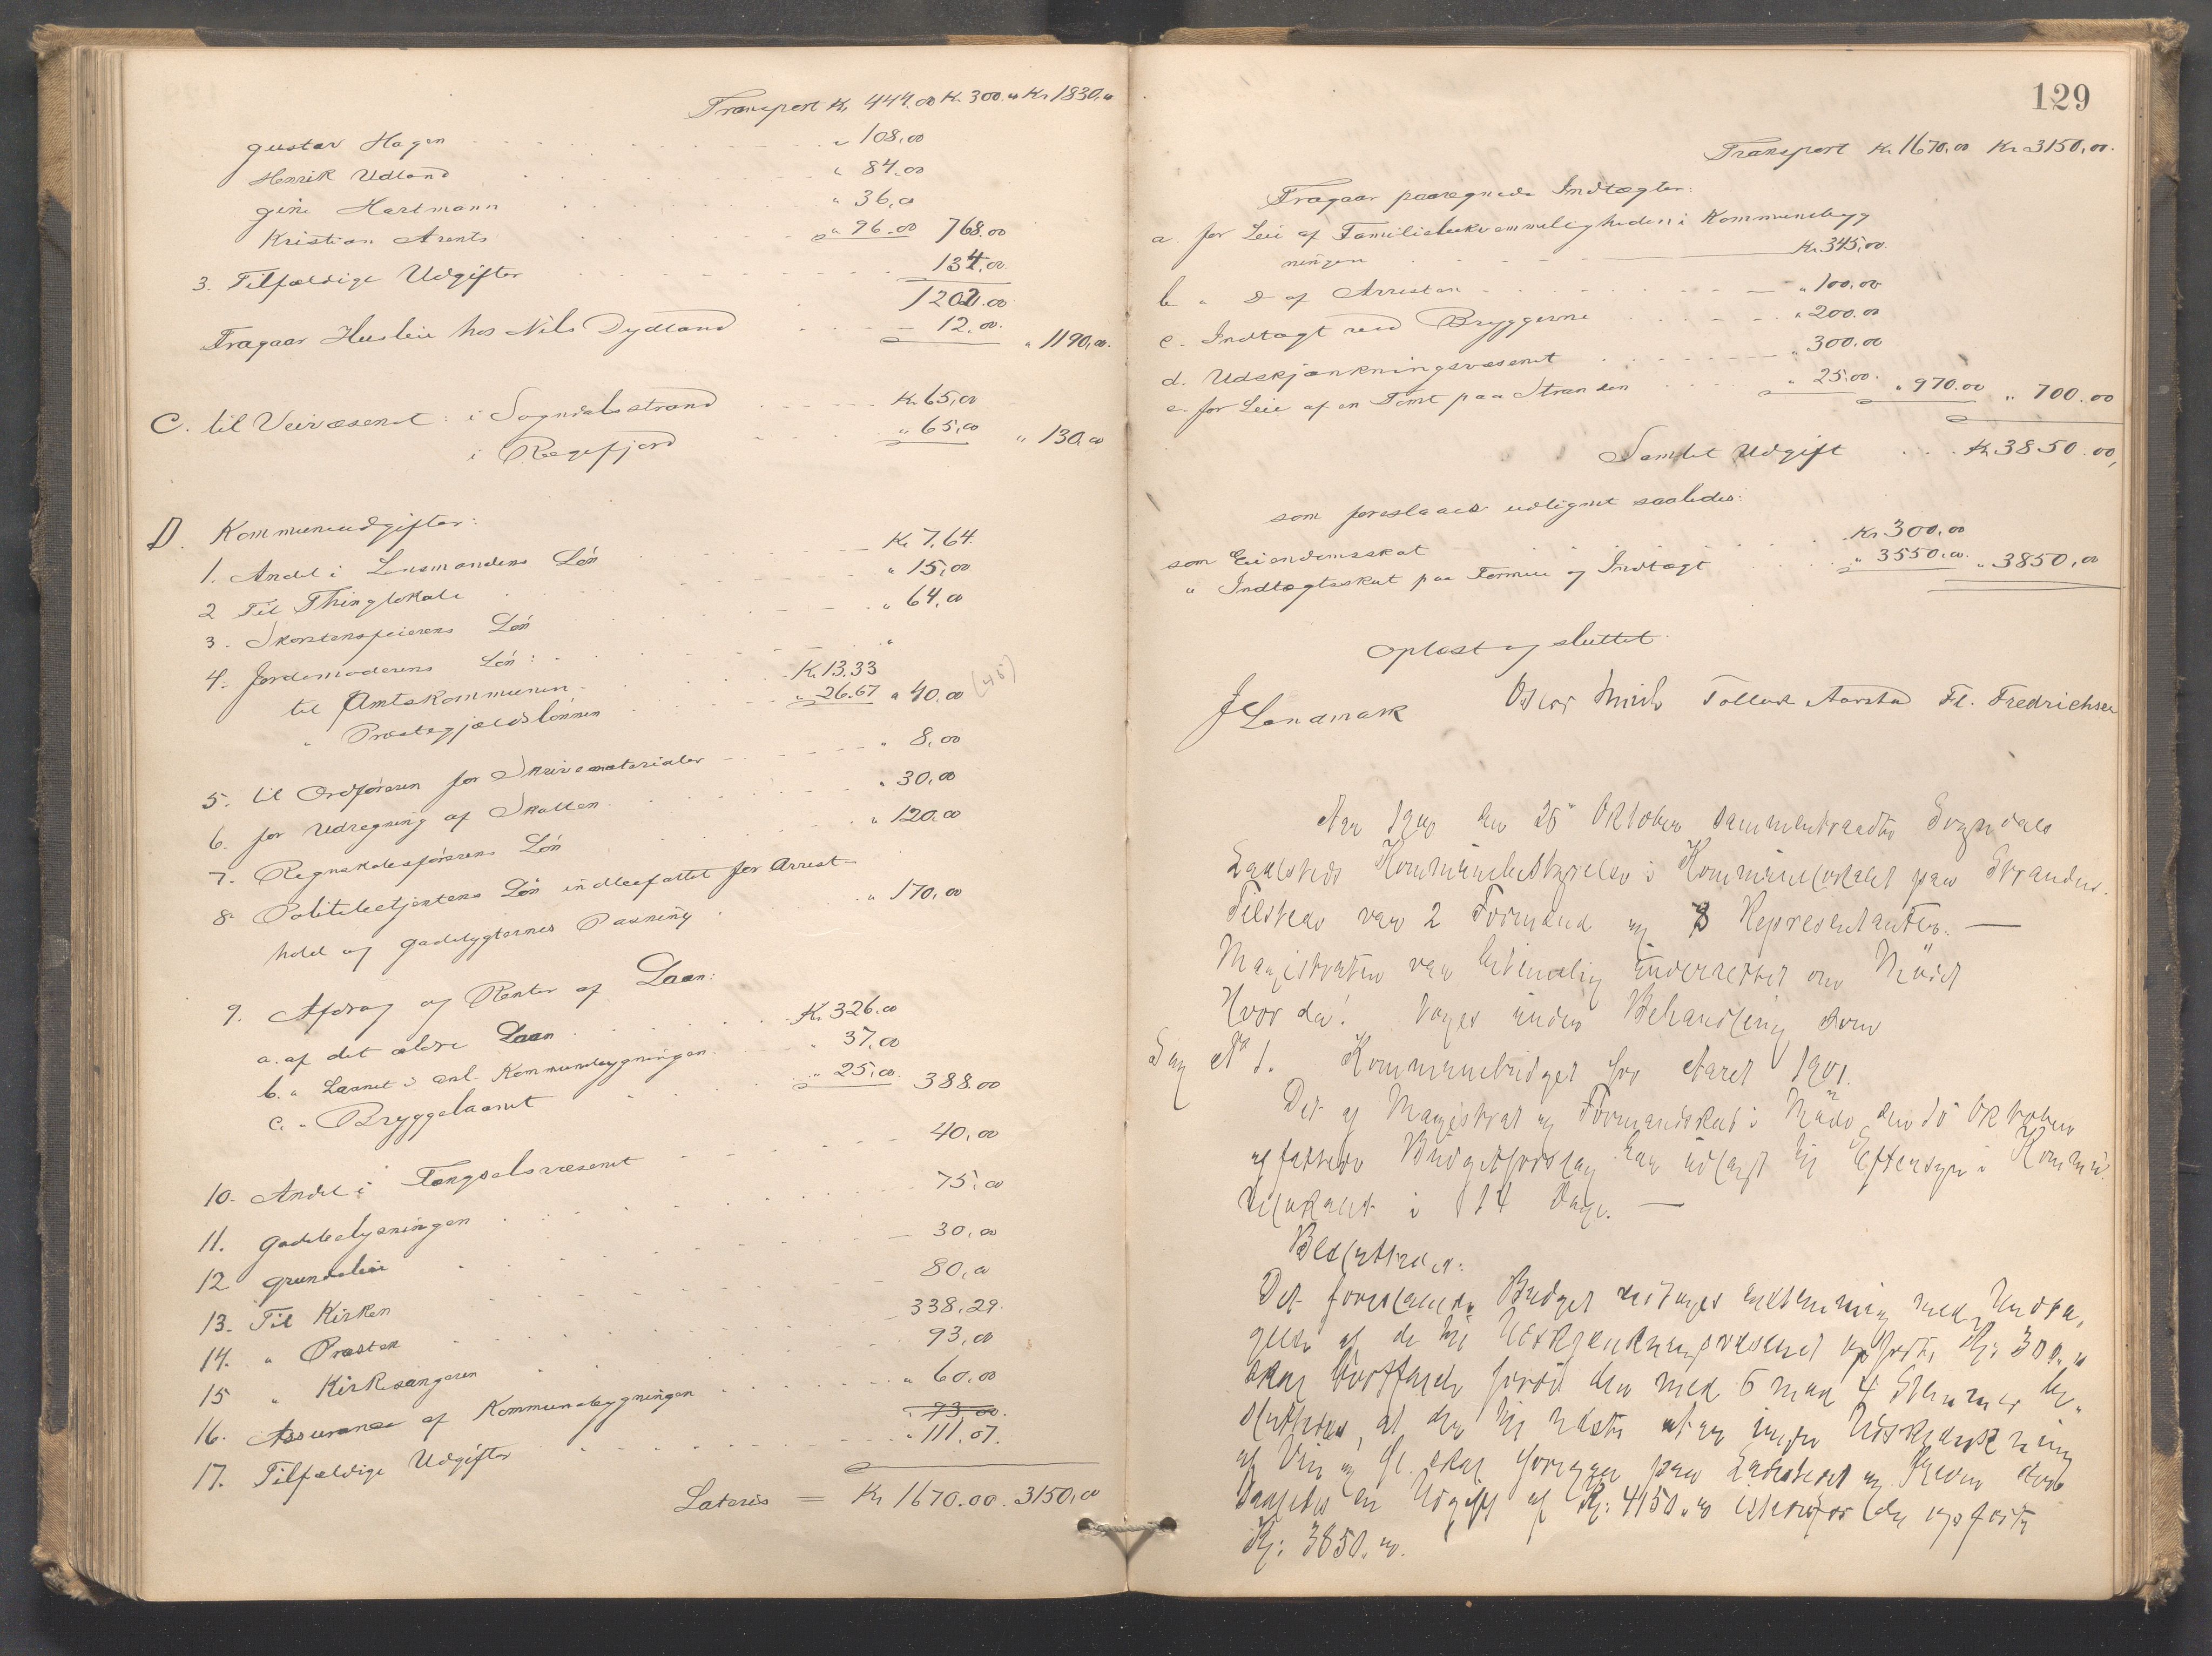 Transport Kr 444.00 Kr. 300.„ Kr 1830,„
Gustav Hagen „ 108,00
Henrik Udland „ 84.00
Gine Hartmann „ 36,00
Kristian Arents „ 96.00 768.00
3. Tilfældige Udgifter 134,00.
1202.00
Fragaar Husleie hos Nils Dydland 12,00. „ 1190,00.
C. til Veivæsenet: i Sogndalsstrand Kr. 65,00
i Rægefjord „ 65,00 „ 130,00
D. Kommuneudgifter:
1. Andel i Lensmandens Løn Kr 7,64
2 Til Thinglokale „ 15,00
3. Skorstensfeierens Løn „ 64,00
4. Jordemoderens Løn: „
til Amtskommunen Kr. 13.33
„ Præstegjældslønnen „ 26.67 „ 40,00 (40)
5. til Ordføreren for Skrivematerialer „ 8,00
6. for Udregning af Skatten „ 30,00
7. Regnskabsførerens Løn „ 120.00
8. Politibetjentens Løn indbefattet for Arrest-
hold og Gadelygternes Pasning „ 170,00
9. Afdrag og Renter af Laan:
a. af det ældre Laan Kr. 326.00
b. „ Laanet i anl. Kommunebygningen „ 37,00
c. „ Bryggelaanet „ 25,00. 388.00
10. Andel i Fængselsvæsenet 40,00
11. Gadebelysningen 75,00
12 Grundleie 30,00
13. Til Kirken 80,00
14. „ Præsten 338,29.
15 „ Kirkesangeren 93,00
16. Assurance af Kommunebygningen „ 60,00
93 00.
17. Tilfældige Udgifter „ 111,07.
Lateris = Kr 1670.00. 3150,00
129
Transport Kr. 1670,00 Kr. 3150,00.
Fragaar paaregnede Indtægter:
a. for Leie af Familiebekvemmeligheden i Kommunebyg
ningen Kr. 345,00.
b „ D af Arresten „ 100,00
c. Indtægt ved Bryggerne „ 200.00
d. Udskjænkningsvæsenet „ 300.00
e. for Leie af en Tomt paa Stranden „ 25.00. „ 970.00 „ 700.00
Samlet Udgift Kr. 3850.00,
som foreslaaes udlignet saaledes:
som Eiendomsskat Kr 300,00
„ Indtægtsskat paa Formue og Indtægt „ 3550,00. „ 3850,00
Oplæst og sluttet.
J Landmark Tollack Aarstad Fl. Fredrichsen
Aar 1900 den 25 Oktober sammentraadte Sogndals
Ladesteds Kommunebestyrelse i Kommunelokalet paa Stranden.
Tilstede var 2 Formænd og 8 Repræsentanter. —
Magistraten var betimelig underrettet om Mødet
Hvor da! toges under Behandling som
Sag No 1. Kommunebudget for Aaret 1901.
Det af Magistrat og Formandskab i Møde den 10 Oktober
affattede Budgetforslag har udlagt til Eftersyn i Kommu
nelokalet i 14 Dage. —
Besluttedes:
Det foreslaaede Budget vedtages enstemmig med Undta-
gelse af de til Udskjænkningsvæsenet opførte Kr: 300.„
skal bortfalde forsaavidt den med 6 mod 4 Stemmer be-
sluttedes, at der til næste Aar ingen Udskjænkning
af Vin og Øl skal foregaa paa Ladestedet og bliver den
samlede Udgift af Kr: 4150.00 istedetfor de opførte
Kr: 3850.00.